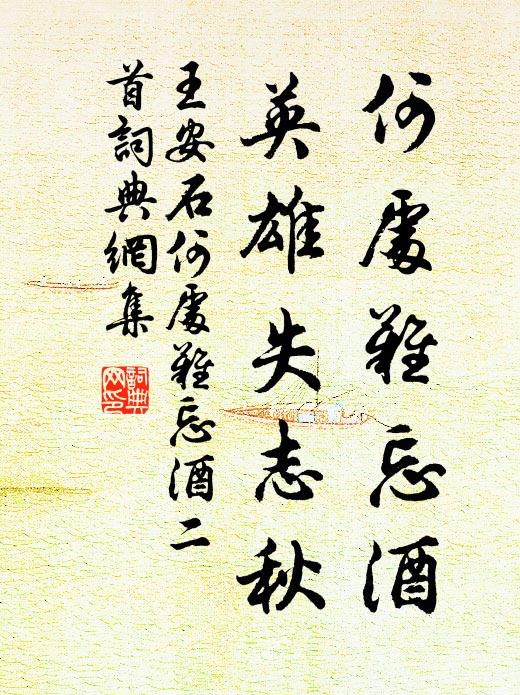 何處難忘酒
英雄失志秋
王安石何處難忘酒二
首詞典網集
詞典
网印